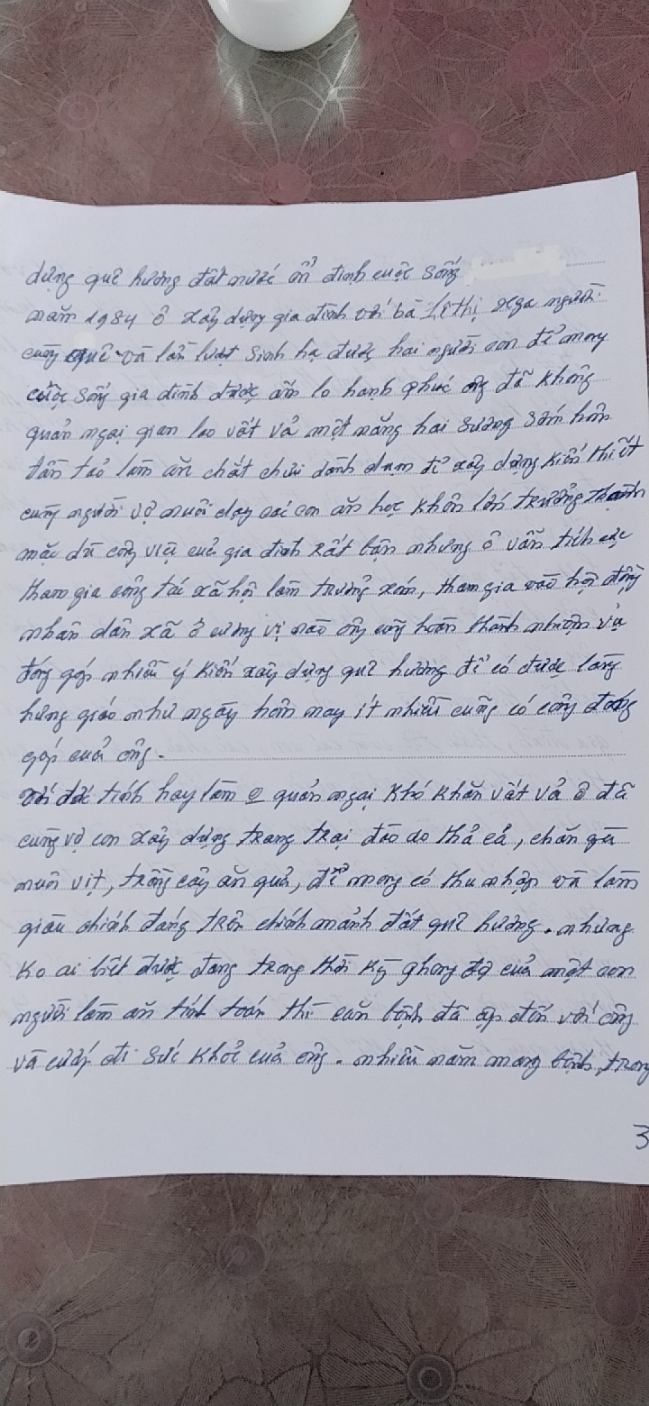 dựng quê hương đất nước ổn định cuộc sống
năm 1984 ô xây dựng gia đình với bà Lê thị Nga người
cùng quê và lần lượt sinh hạ được hai người con để mong
cuộc sống gia đình được ấm lo hạnh phúc ông đã không
quản ngại gian lao vất vả một nắng hai sương sớm hôm
tần tảo làm ăn chắt chiu dành dụm để xây dựng kiến thiết
cùng người vợ nuôi dạy các con ăn học khôn lớn trưởng thành
mặc dù công việc của gia đình rất bận nhưng ô vẫn tích cực
tham gia công tác xã hội làm trưởng xóm, tham gia vào hội đồng
nhân dân xã ở cương vị nào ông cũng hoàn thành nhiệm vụ
đóng góp nhiều ý kiến xây dựng quê hương để có được làng
hưng giáo như ngày hôm nay ít nhiều cũng có công đóng
góp của ông.
với đức tính hay làm quản ngại khó khăn vất vả ô đã
cùng vợ con xây dựng trang trại đào ao thả cá, chăn gà
nuôi vịt, trồng cây ăn quả, để mong có thu nhập và làm
giàu chính đáng trên chính mảnh đất quê hương. nhưng
ko ai biết được đang trong thời kỳ phong độ của một con
người làm ăn tính toán thì căn bệnh đã ập đến với ông
và cướp đi sức khoẻ của ông. nhiều năm mang bệnh, trong
3